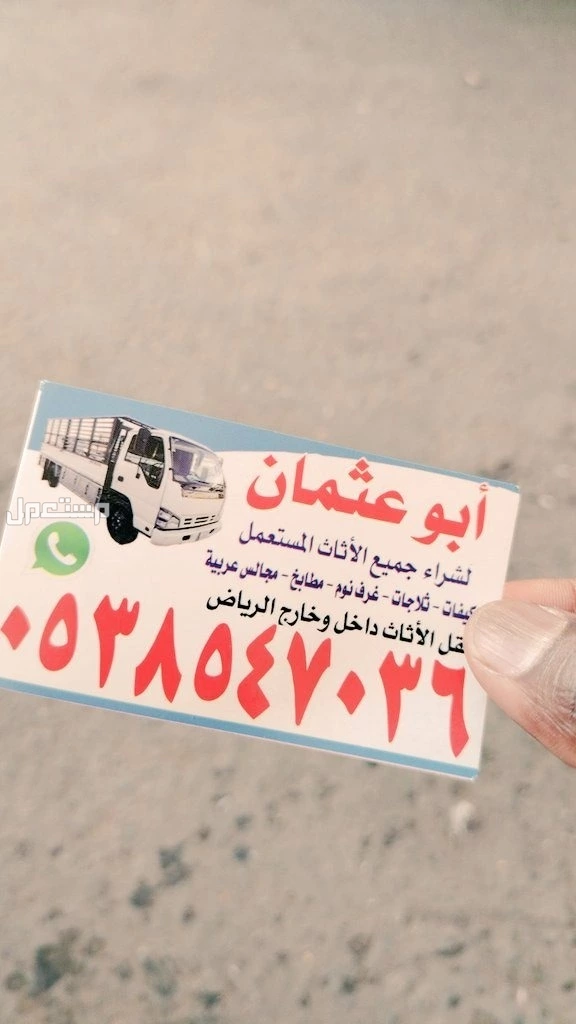 أبو عثمان
لشراء جميع الأثاث المستعمل
- ثلاجات - غرف نوم - مطابخ - مجالس عربية
الأثاث داخل وخارج الرياض
٠٥٣٨٥٤٧٠٣٦
مستعمل